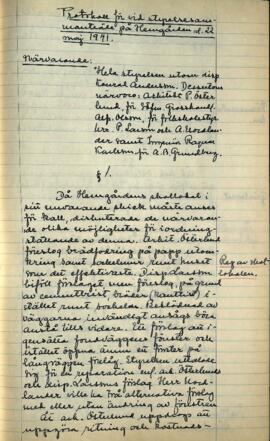 Protokoll för vid styrelsesam-
manträde på Hemgården d. 22
maj 1941.
Närvarande:
Hela styrelsen utom disp.
Konrad Andersson. Dessutom
närvoro: Arkitekt P. Öster-
lund, för
Alf. Olsson, för frikyrkostyr
hrr. P. Larson och A. Nordlan-
der samt Ragnar
Karlsson för A.B. Grundberg.
§ 1.
Då Hemgårdens skollokal i
sitt nuvarande skick måste anses
för kall, diskuterades de närvaran-
de olika möjligheter för iordning-
ställande av denna. Arkit. Österlund
föreslog brädfodring på papp utom-
kring samt runt huset
som det effektivaste. Disp. Larsson
biföll förslaget men föreslog, på grund
av
stället runt sockeln. Beklädnad av
väggarna invändigt ansågs böra
anstå tills vidare. Ett förslag att
igensätta fondväggens fönster och
istället öppna ännu ett fönster på
långväggen förelåg. Styrelsen uttalade
sig för en reparation enl. ark. Österlunds
och disp. Larssons förslag. Herr Nord-
lander ville ha två alternativa förslag
med eller utan ändring av fönstren.
Åt ark. Österlund uppdrogs att
uppgöra ritning och kostnads-
Rep. av skol-
lokalen.